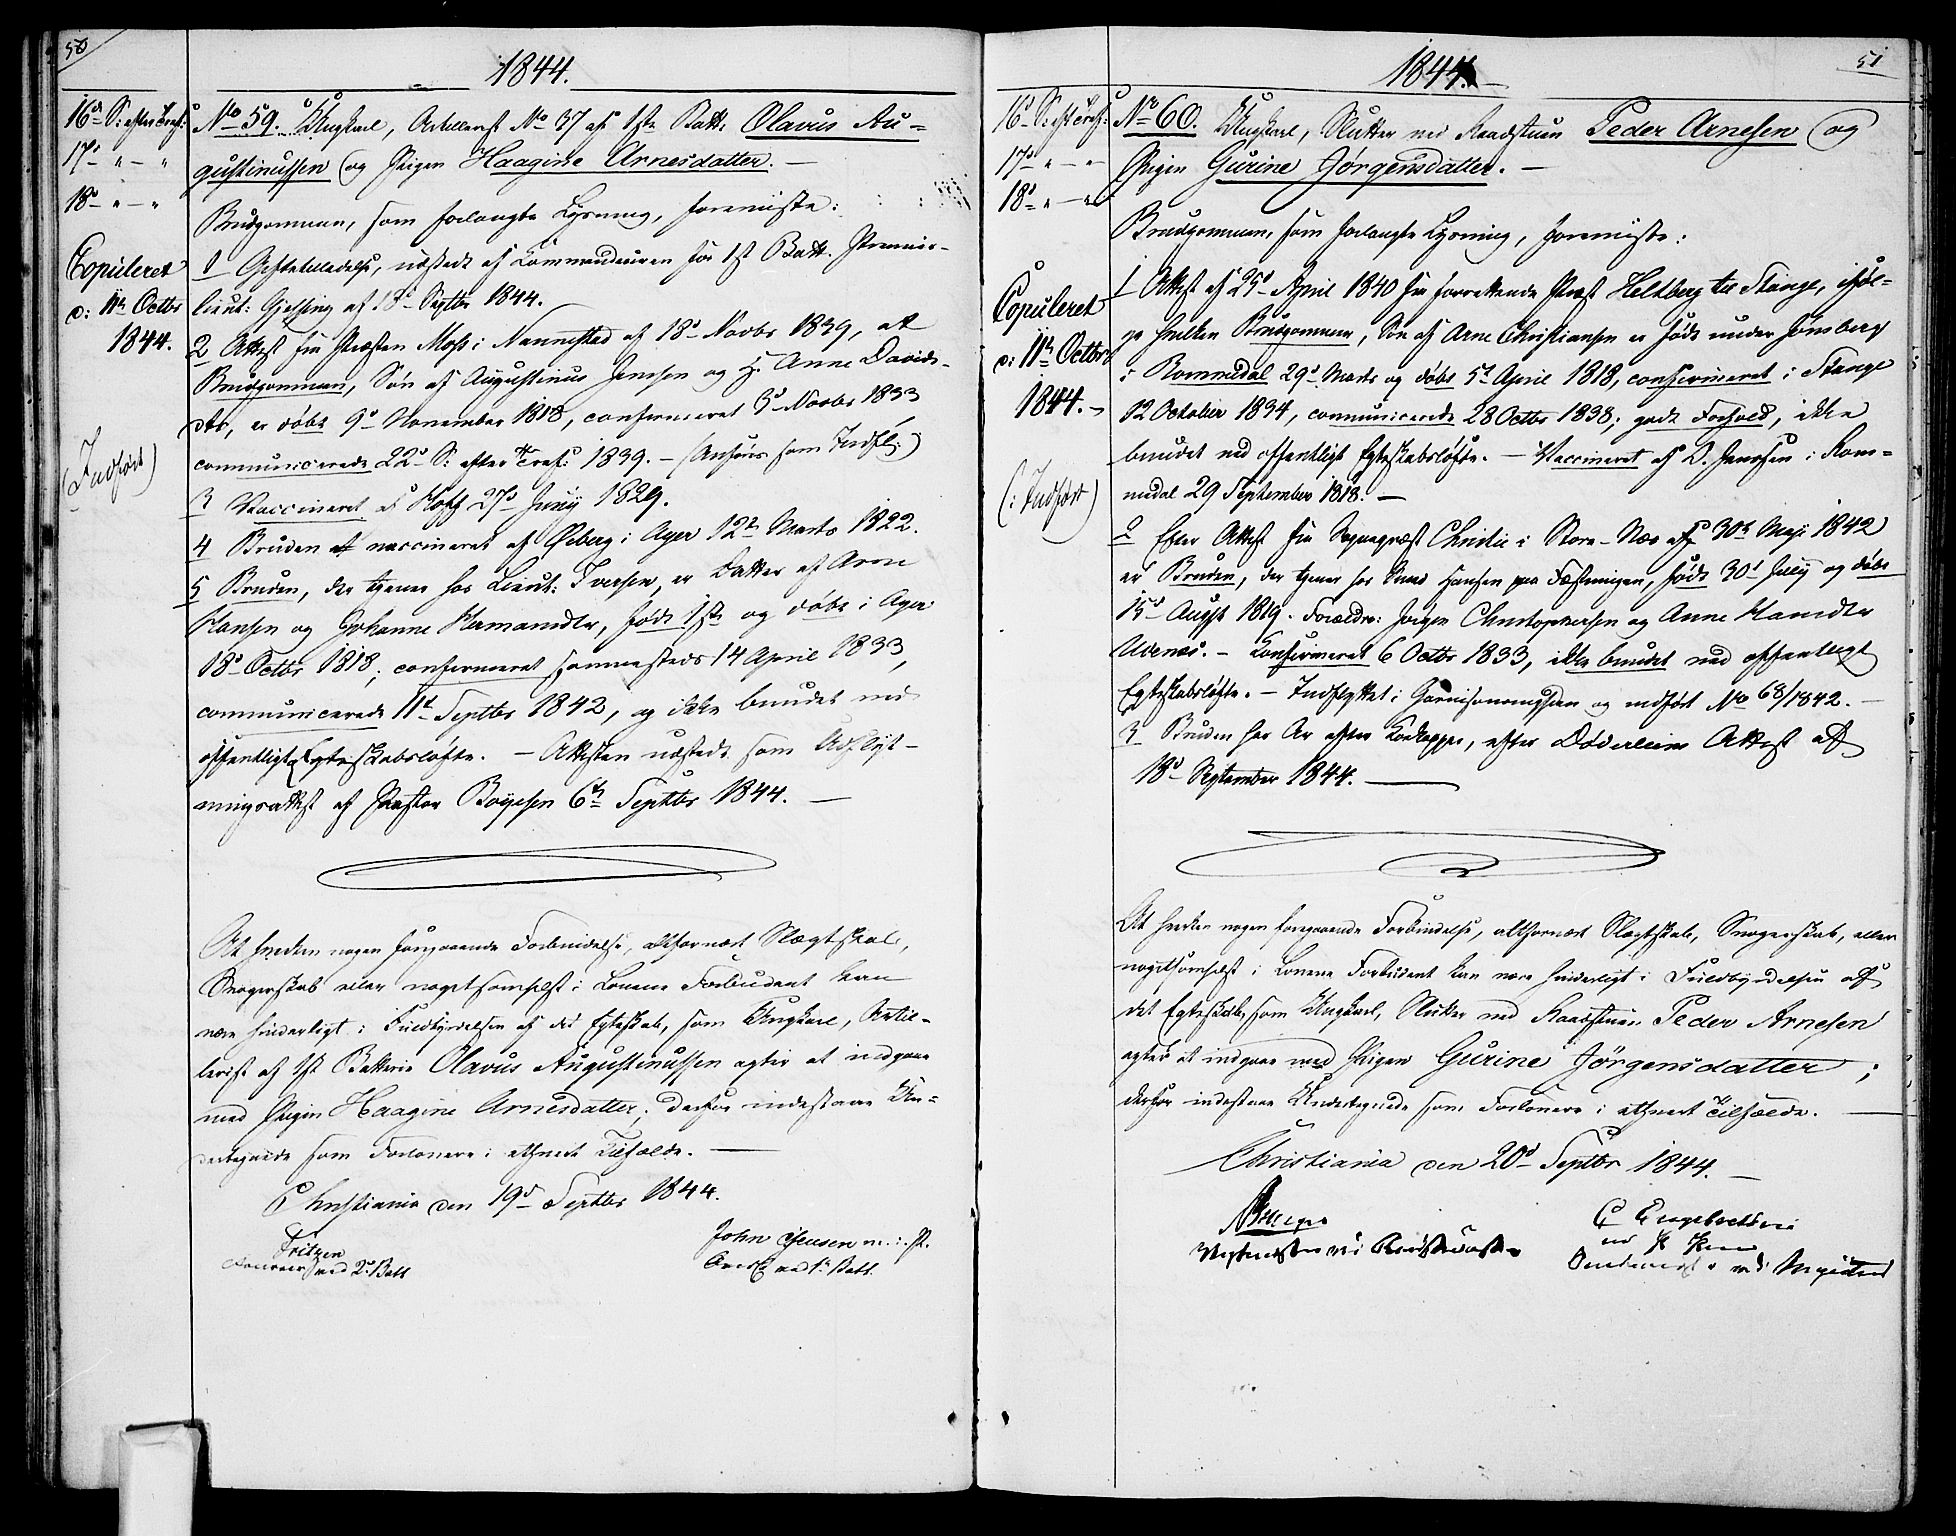 50
1844.
16de S: efter Tref:
17de " — "
18de " — "
Copuleret
d: 11te Octbr
1844.
(Indført)
No 59. Ungkarl, Artillerist No 37 af 1ste Batt: Olavus Au-
gustinussen og Pigen Haagine Arnesdatter. —
Brudgommen, som forlangte Lysning, foreviste:
1 Giftetilladelse, udstedt af Commandeuren for 1st Batt. Premier-
lieut: Gjessing af 18de Septbr 1844.
2 Attest fra Præsten Moss i Nannestad af 18de Novbr 1839, at
Brudgommen, Søn af Augustinus Jensen og H. Anne Davids-
dtr, er døbt 9de November 1818, confirmeret 3de Novbr 1833
communicerede 22de S: efter Tref: 1839. — (Anføres som Indfl:)
3 Vaccineret af Hoff 27de Junij 1829.
4 Bruden er vaccineret af Øeberg i Ager 12te Marts 1822.
5 Bruden, der tjener hos Lieut: Iversen, er Datter af Arne
Hansen og Johanne Hermansdtr, født 1ste og døbt i Ager
18de Octbr 1818; confirmeret sammesteds 14 April 1833,
communicerede 11te Septbr 1842, og ikke bundet ved
offentligt Egteskabsløfte. — Attesten udstedt som Udflyt-
ningsattest af Pastor Boyesen 6te Septbr 1844. —
At hverken nogen foregaaende Forbindelse, altfornært Slægtskab,
Svogerskab eller nogetsomhelst i Lovene Forbudent kan
være hinderligt i Fuldbyrdelsen af det Egteskab, som Ungkarl, Artil-
lerist af 1st Batterie Olavus Augustinussen agter at indgaae
med Pigen Haagine Arnesdatter; derfor indestaae Un-
dertegnede som Forlovere i ethvert Tilfælde. —
Christiania den 19de Septbr 1844.
Fritzen
Foureer ved 2d Batt
John Jensen m. i. P.
ved 1ste Batt.
51
1844.
16de S: eft Tref:
17de " — "
18de " — "
Copuleret
d: 11te Octbr
1844. —
(: Indført)
No 60. Ungkarl, Slutter ved Raadstuen Peder Arnesen og
Pigen Gurine Jørgensdatter. —
Brudgommen, som forlangte Lysning, foreviste:
1 Attest af 25de April 1840 fra forrettende Præst Heltberg til Stange, iføl-
ge hvilken Brudgommen, Søn af Arne Christiansen er født under Jønsberg
i Rommedal 29de Marts og døbt 5te April 1818, confirmeret i Stange
12 October 1834, communicerede 28 Octbr 1838; godt Forhold, ikke
bundet ved offentligt Egteskabsløfte. — Vaccineret af D. Jenssen i Rom-
medal 29 September 1818. —
2 Efter Attest fra Sognepræst Christie i Store-Næs af 30te Maji 1842
er Bruden, der tjener hos Knud Hansen paa Fæstningen, født 30te Julij og døbt
15de August 1819. Forældre: Jørgen Christophersen og Anne Hansdtr
Udenæs. — Konfirmeret 6 Octbr 1833, ikke bundet ved offentligt
Egteskabsløfte. — Indflyttet i Garnisonsmenigheden og indført No 68/1842. —
3 Bruden har Ar efter Koekopper, efter Døderleins Attest af
18de September 1844. —
At hverken nogen foregaaende Forbindelse, altfornært Slægtskab, Svogerskab, eller
nogetsomhelst i Lovene Forbudent kan være hinderligt i Fuldbyrdelsen af
det Egteskab, som Ungkarl, Slutter ved Raadstuen Peder Arnesen
agter at indgaae med Pigen Gurine Jørgensdatter;
derfor indestaae Undertegnede som Forlovere i ethvert Tilfælde. —
Christiania den 20de Septbr 1844. —
C Engebretsen